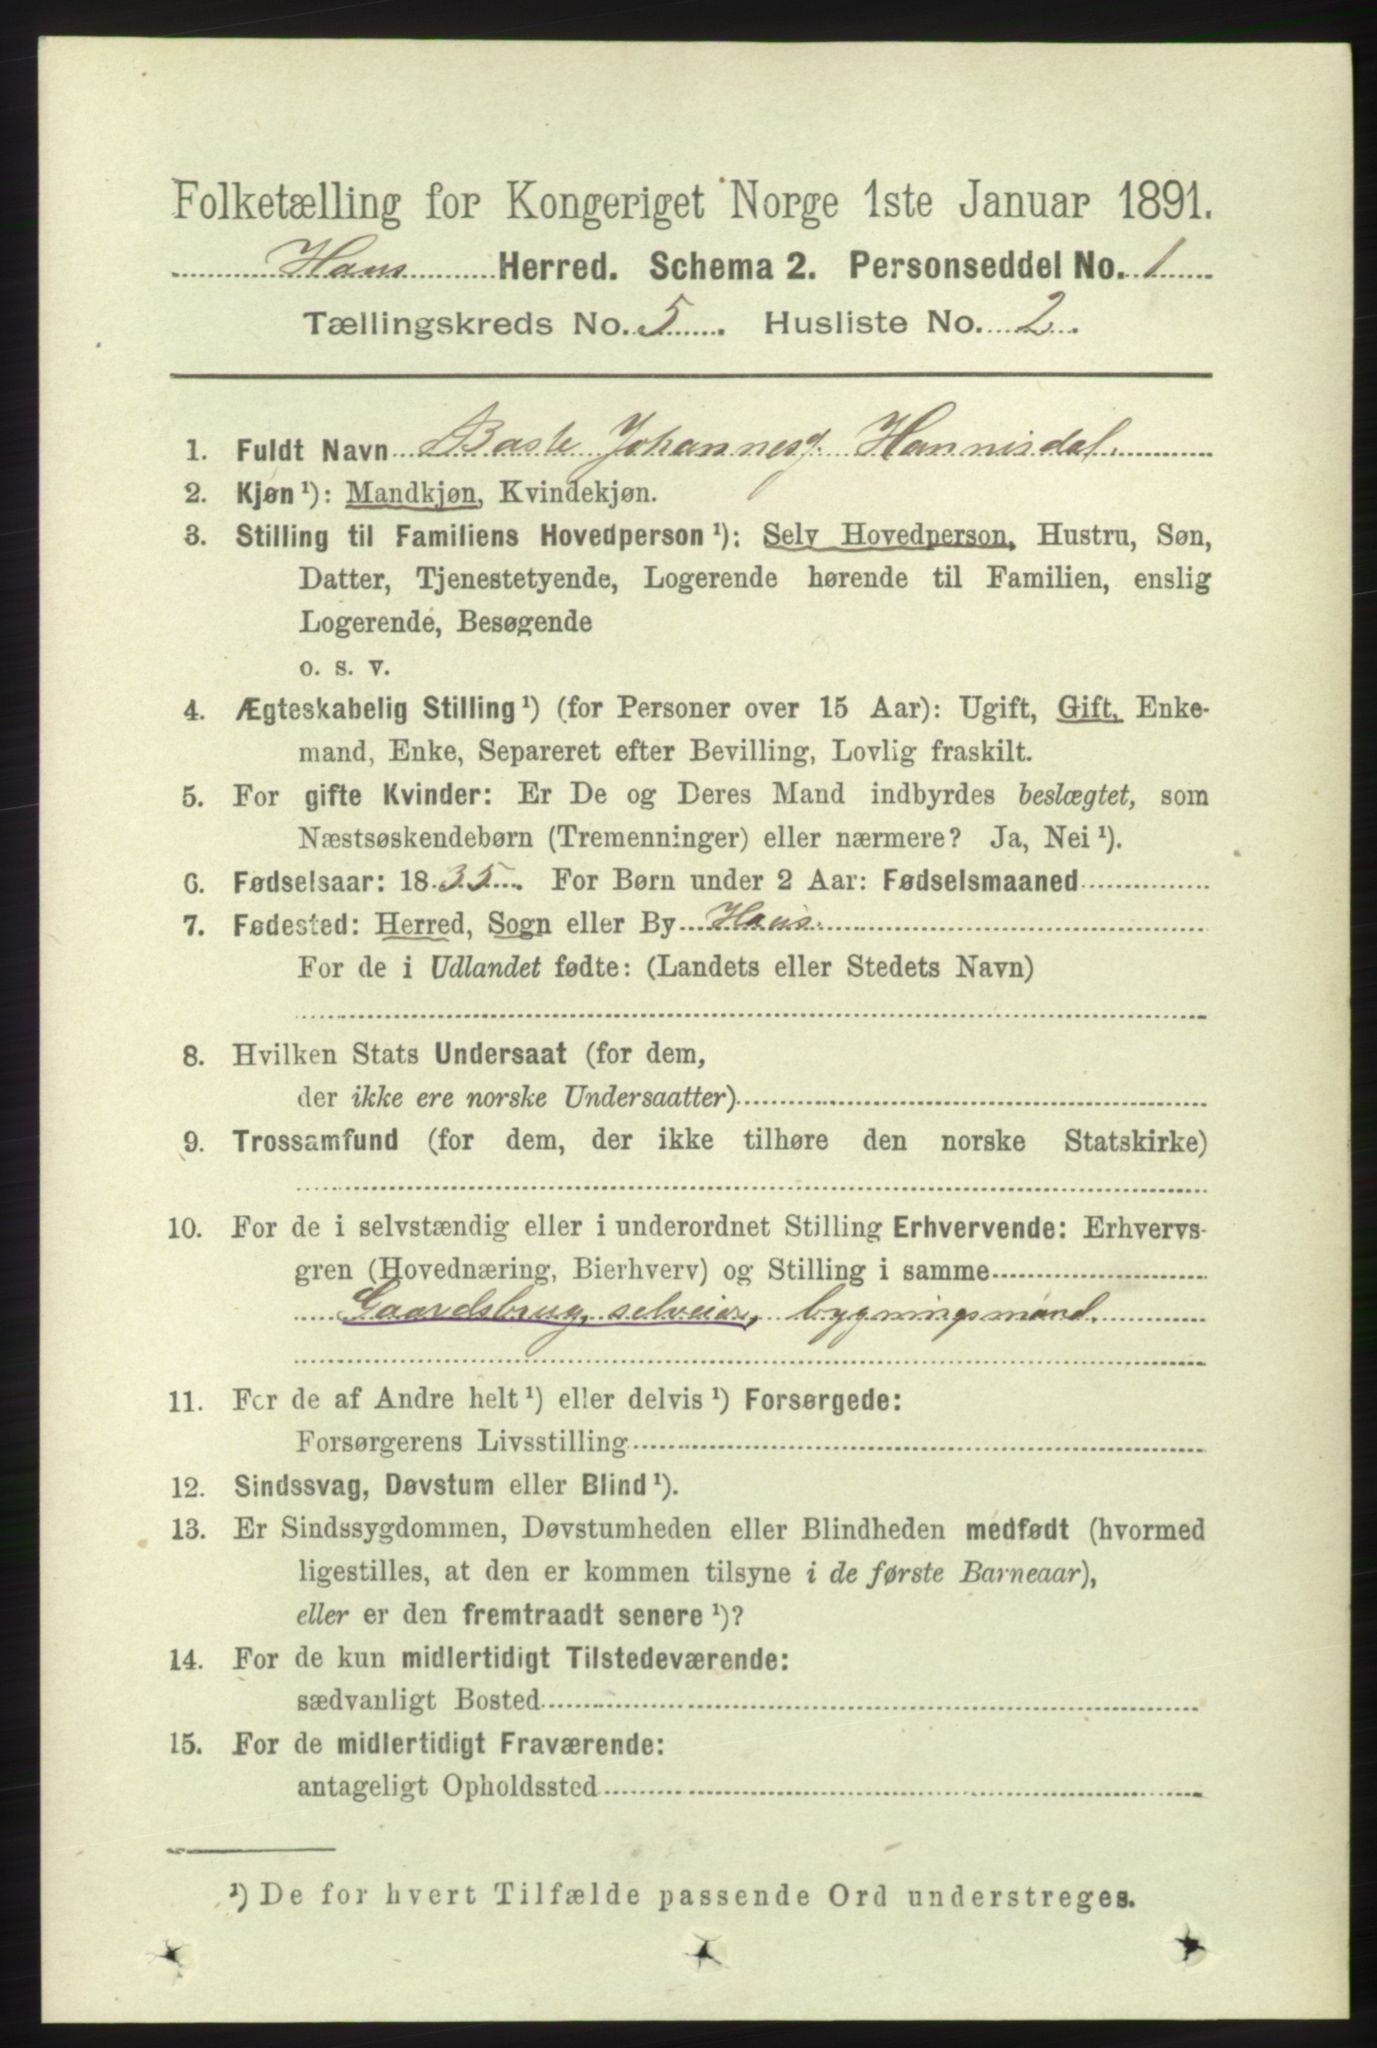 Folketælling for Kongeriget Norge 1ste Januar 1891.
Haus Herred. Schema 2. Personseddel No. 1
Tællingskreds No. 5. Husliste No. 2.
1. Fuldt Navn Baste Johannes Hannisdal.
2. Kjøn ¹): Mandkjøn, Kvindekjøn.
3. Stilling til Familiens Hovedperson ¹): Selv Hovedperson, Hustru, Søn,
Datter, Tjenestetyende, Logerende hørende til Familien, enslig
Logerende, Besøgende
o. s. v.
4. Ægteskabelig Stilling ¹) (for Personer over 15 Aar): Ugift, Gift, Enke-
mand, Enke, Separeret efter Bevilling, Lovlig fraskilt.
5. For gifte Kvinder: Er De og Deres Mand indbyrdes beslægtet, som
Næstsøskendebørn (Tremenninger) eller nærmere? Ja, Nei ¹).
6. Fødselsaar: 1835. For Børn under 2 Aar: Fødselsmaaned
7. Fødested: Herred, Sogn eller By Haus.
For de i Udlandet fødte: (Landets eller Stedets Navn)
8. Hvilken Stats Undersaat (for dem,
der ikke ere norske Undersaatter)
9. Trossamfund (for dem, der ikke tilhøre den norske Statskirke)
10. For de i selvstændig eller i underordnet Stilling Erhvervende: Erhvervs-
gren (Hovednæring, Bierhverv) og Stilling i samme
Gaardsbrug, selveier, bygningsmand.
11. For de af Andre helt ¹) eller delvis ¹) Forsørgede:
Forsørgerens Livsstilling
12. Sindssvag, Døvstum eller Blind ¹).
13. Er Sindssygdommen, Døvstumheden eller Blindheden medfødt (hvormed
ligestilles, at den er kommen tilsyne i de første Barneaar),
eller er den fremtraadt senere ¹)?
14. For de kun midlertidigt Tilstedeværende:
sædvanligt Bosted
15. For de midlertidigt Fraværende:
antageligt Opholdssted
¹) De for hvert Tilfælde passende Ord understreges.